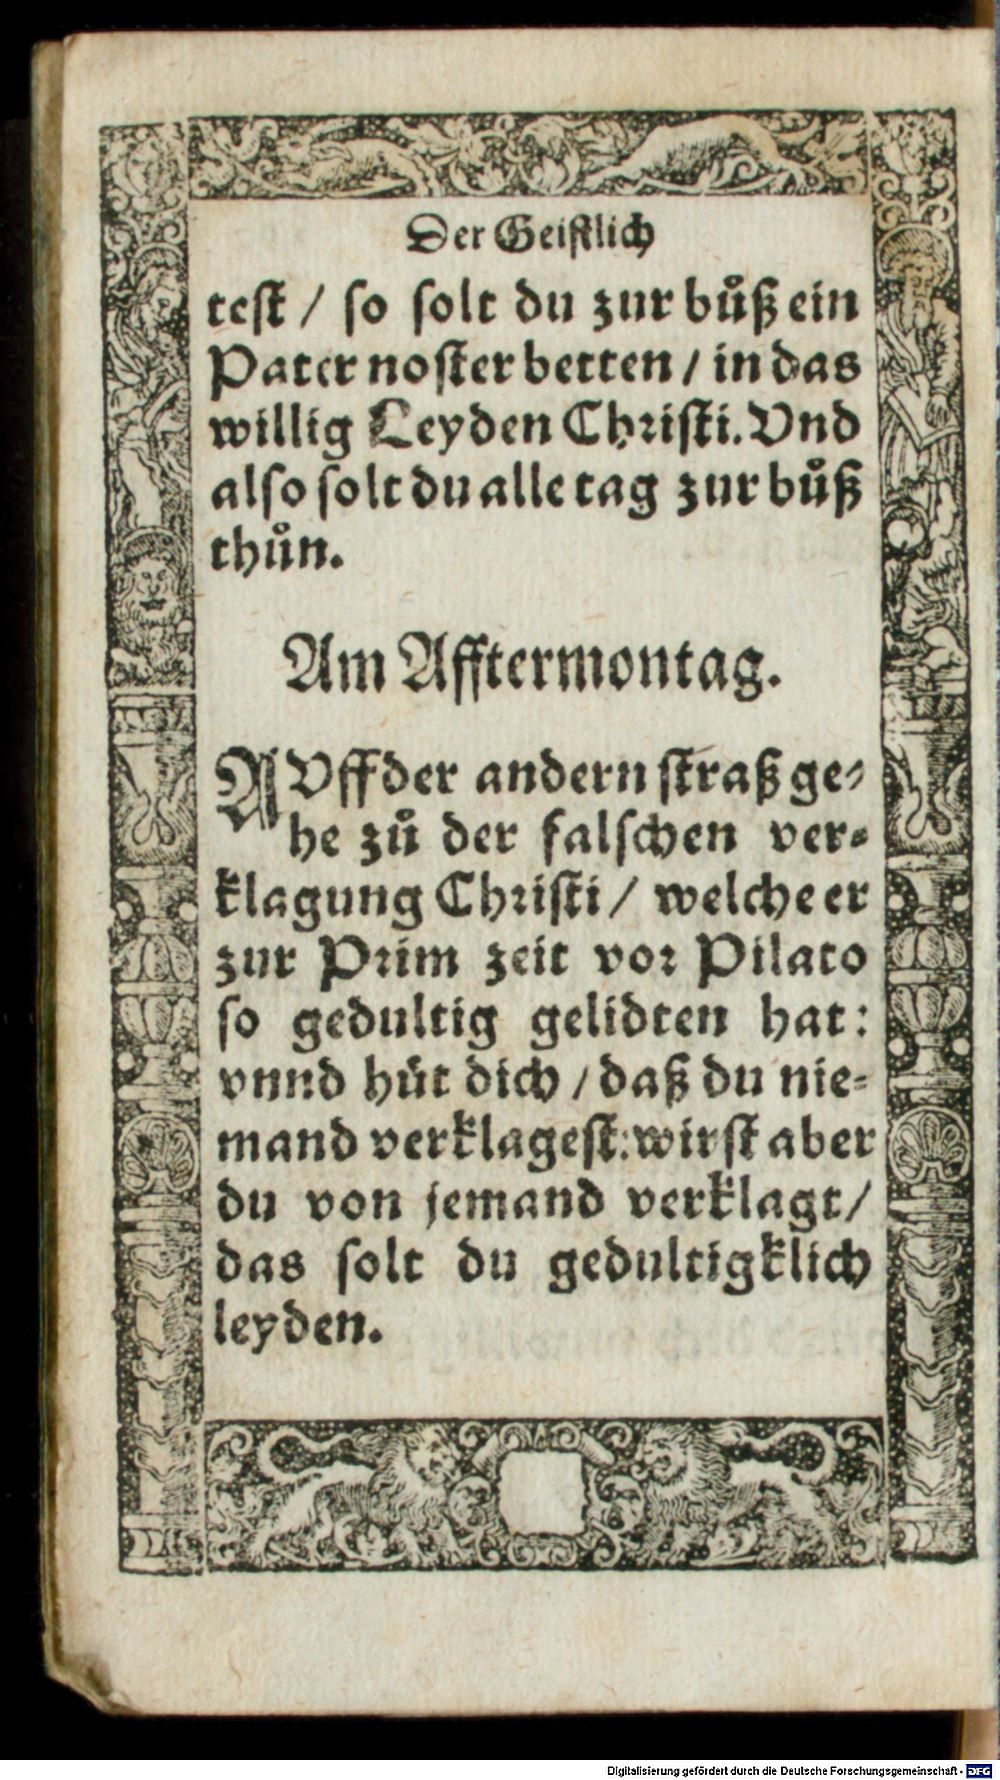 Der Geiſtlich
teſt / ſo ſolt du zur bůß ein
Pater noſter betten / in das
willig Leyden Chriſti. Vnd
alſo ſolt du alle tag zur bůß
thůn.
Am Afftermontag.
AVff der andern ſtraß ge⸗
he zů der falſchen ver⸗
klagung Chriſti / welche er
zur Prim zeit vor Pilato
ſo gedultig gelidten hat:
vnnd hüt dich / daß du nie⸗
mand verklageſt: wirſt aber
du von jemand verklagt /
das ſolt du gedultigklich
leyden.
Digitalisierung gefördert durch die Deutsche Forschungsgemeinschaft - DFG